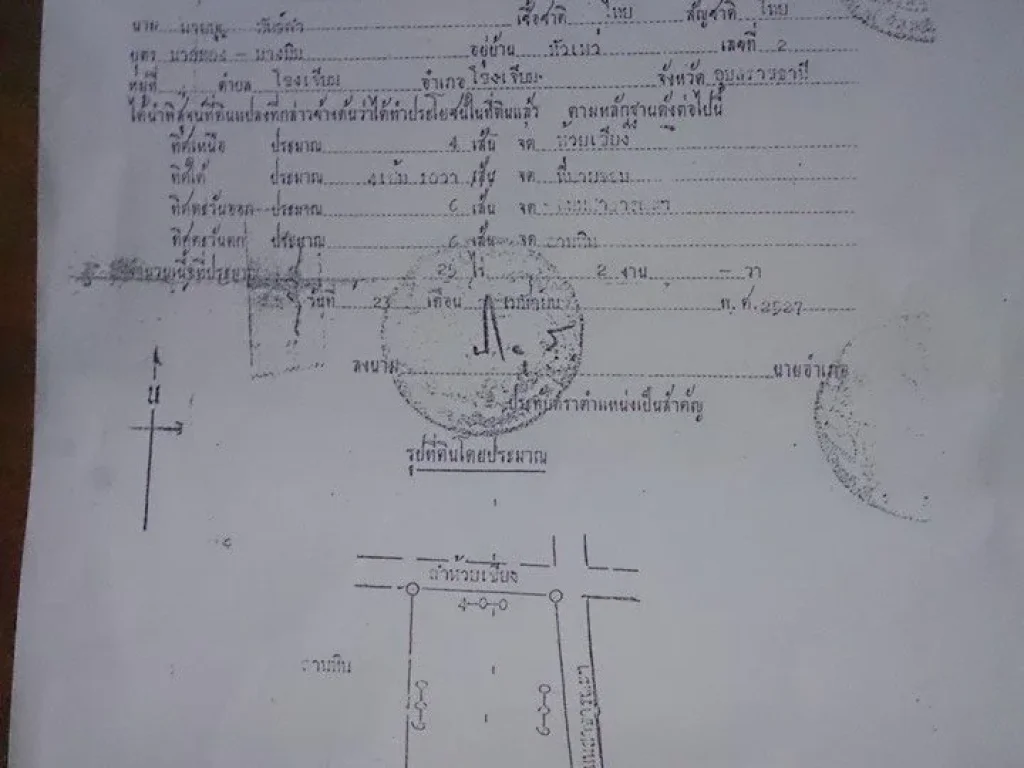 นาม เชื้อชาติ ไทย สัญชาติ ไทย
บุตร อยู่บ้าน เลขที่ 2
หมู่ที่ ตำบล โรงเรียน อำเภอ โรงเรียน จังหวัด อุบลราชธานี
ได้นำพิสูจน์ที่ดินแปลงที่กล่าวข้างต้นว่าได้ทำประโยชน์ในที่ดินแล้ว ตามหลักฐานดังต่อไปนี้
ทิศเหนือ ประมาณ 4 เส้น จด ห้วยเซียง
ทิศใต้ ประมาณ 4 เส้น 10 วา เส้น จด
ทิศตะวันออก ประมาณ 6 เส้น จด
ทิศตะวันตก ประมาณ 6 เส้น จด ลานหิน
จำนวนเนื้อที่ประมาณ 25 ไร่ 2 งาน - วา
วันที่ 23 เดือน พ.ศ. 2527
ลงนาม นายอำเภอ
ประทับตราตำแหน่งเป็นสำคัญ
น
รูปที่ดินโดยประมาณ
ลำห้วยเซียง
4-0-0
ลานหิน
6-0-0
6-0-0